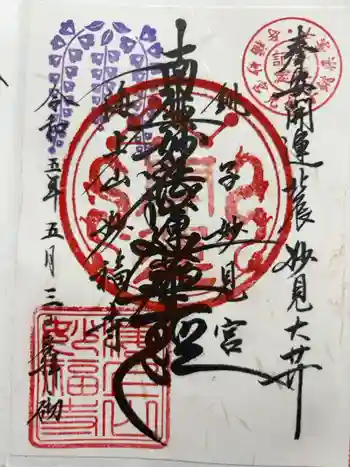 奉安開運北辰妙見大菩薩
銚子妙見宮
南無妙法蓮華経
海上山妙福寺
令和五年五月三日